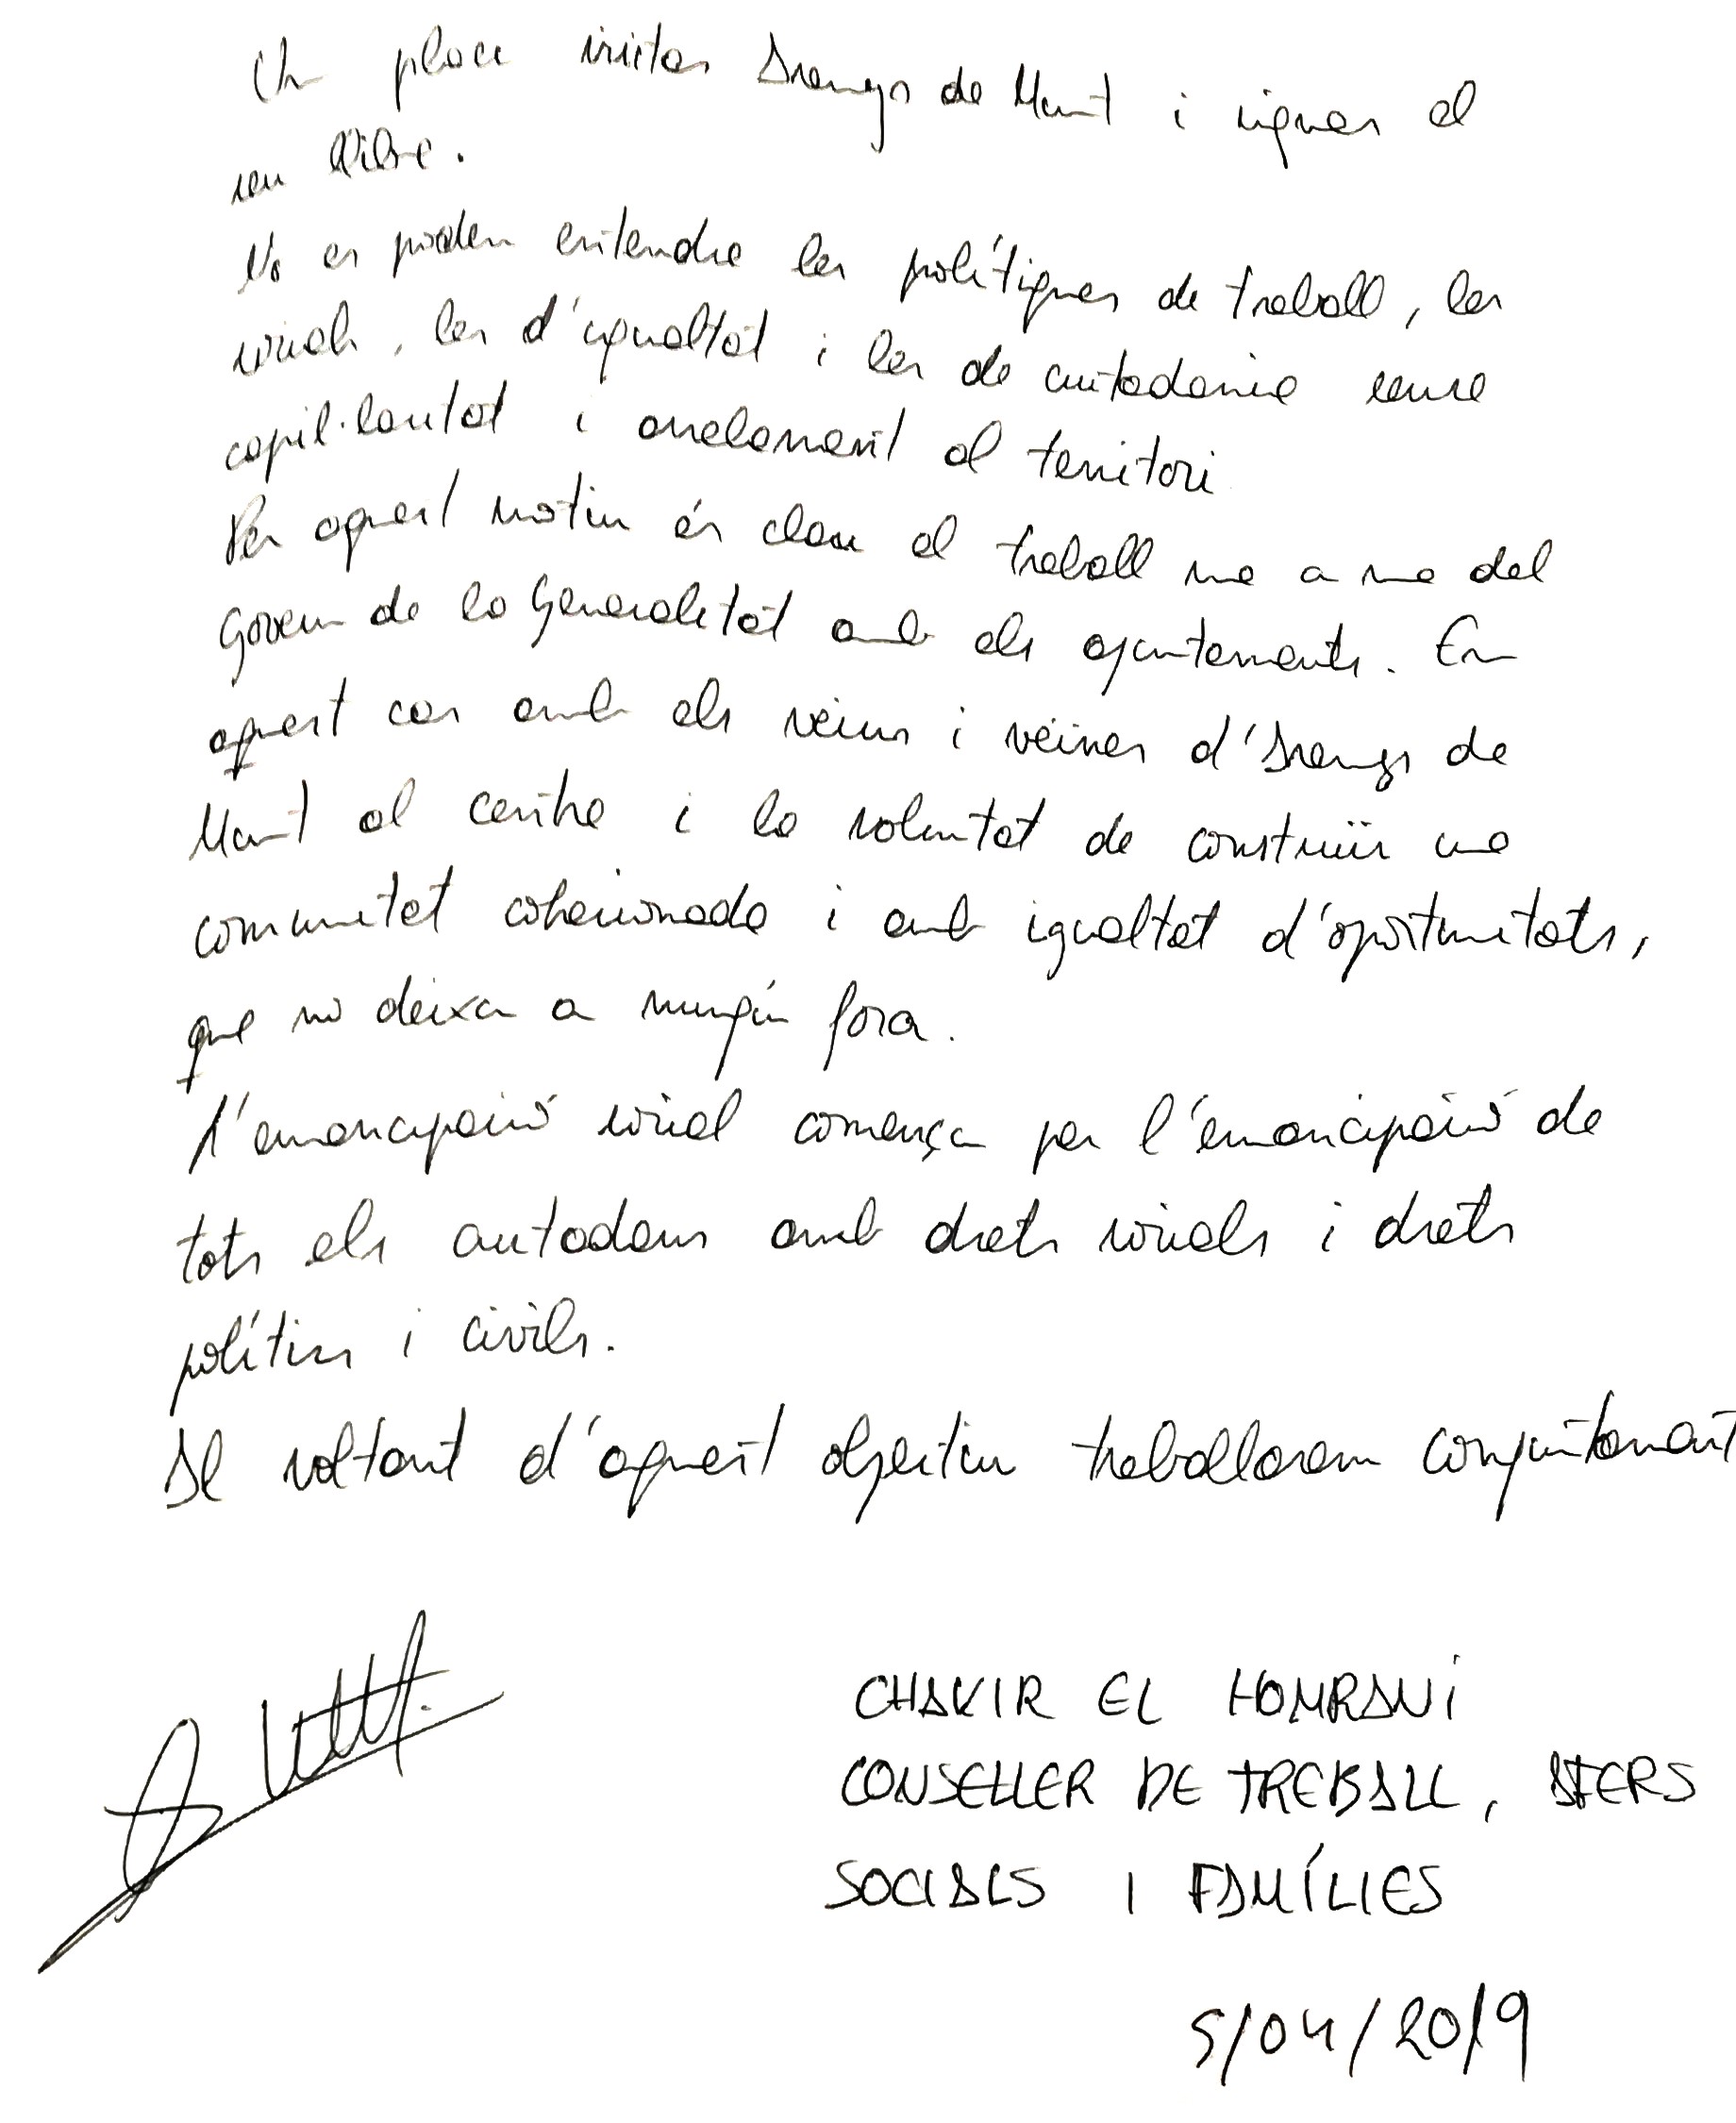 Un plaer visitar Arenys de Munt i signar el
seu llibre.
No es poden entendre les polítiques de treball, les
socials, les d'igualtat i les de ciutadania sense
capil·laritat i arrelament al territori
Per aquest motiu és clau el treball ma a ma del
Govern de la Generalitat amb els ajuntaments. En
aquest cas amb els veïns i veïnes d'Arenys de
Munt al centre i la voluntat de construïr una
comunitat cohesionada i amb igualtat d'oportunitats,
que no deixa a ningú fora.
L'emancipació social comença per l'emancipació de
tots els ciutadans amb drets socials i drets
polítics i civils.
Al voltant d'aquest objectiu treballarem conjuntament
CHAKIR EL HOMRANI
CONSELLER DE TREBALL, AFERS
SOCIALS I FAMÍLIES
5/04/2019